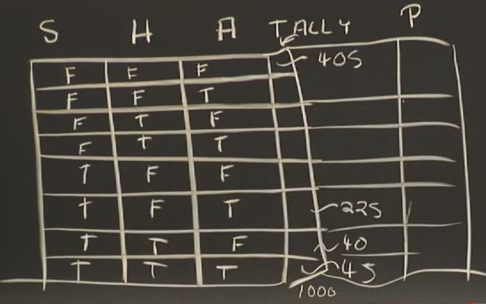 S H A TALLY P
F F F 405
F F T
F T F
F T T
T F F
T F T 225
T T F 40
T T T 45
1000